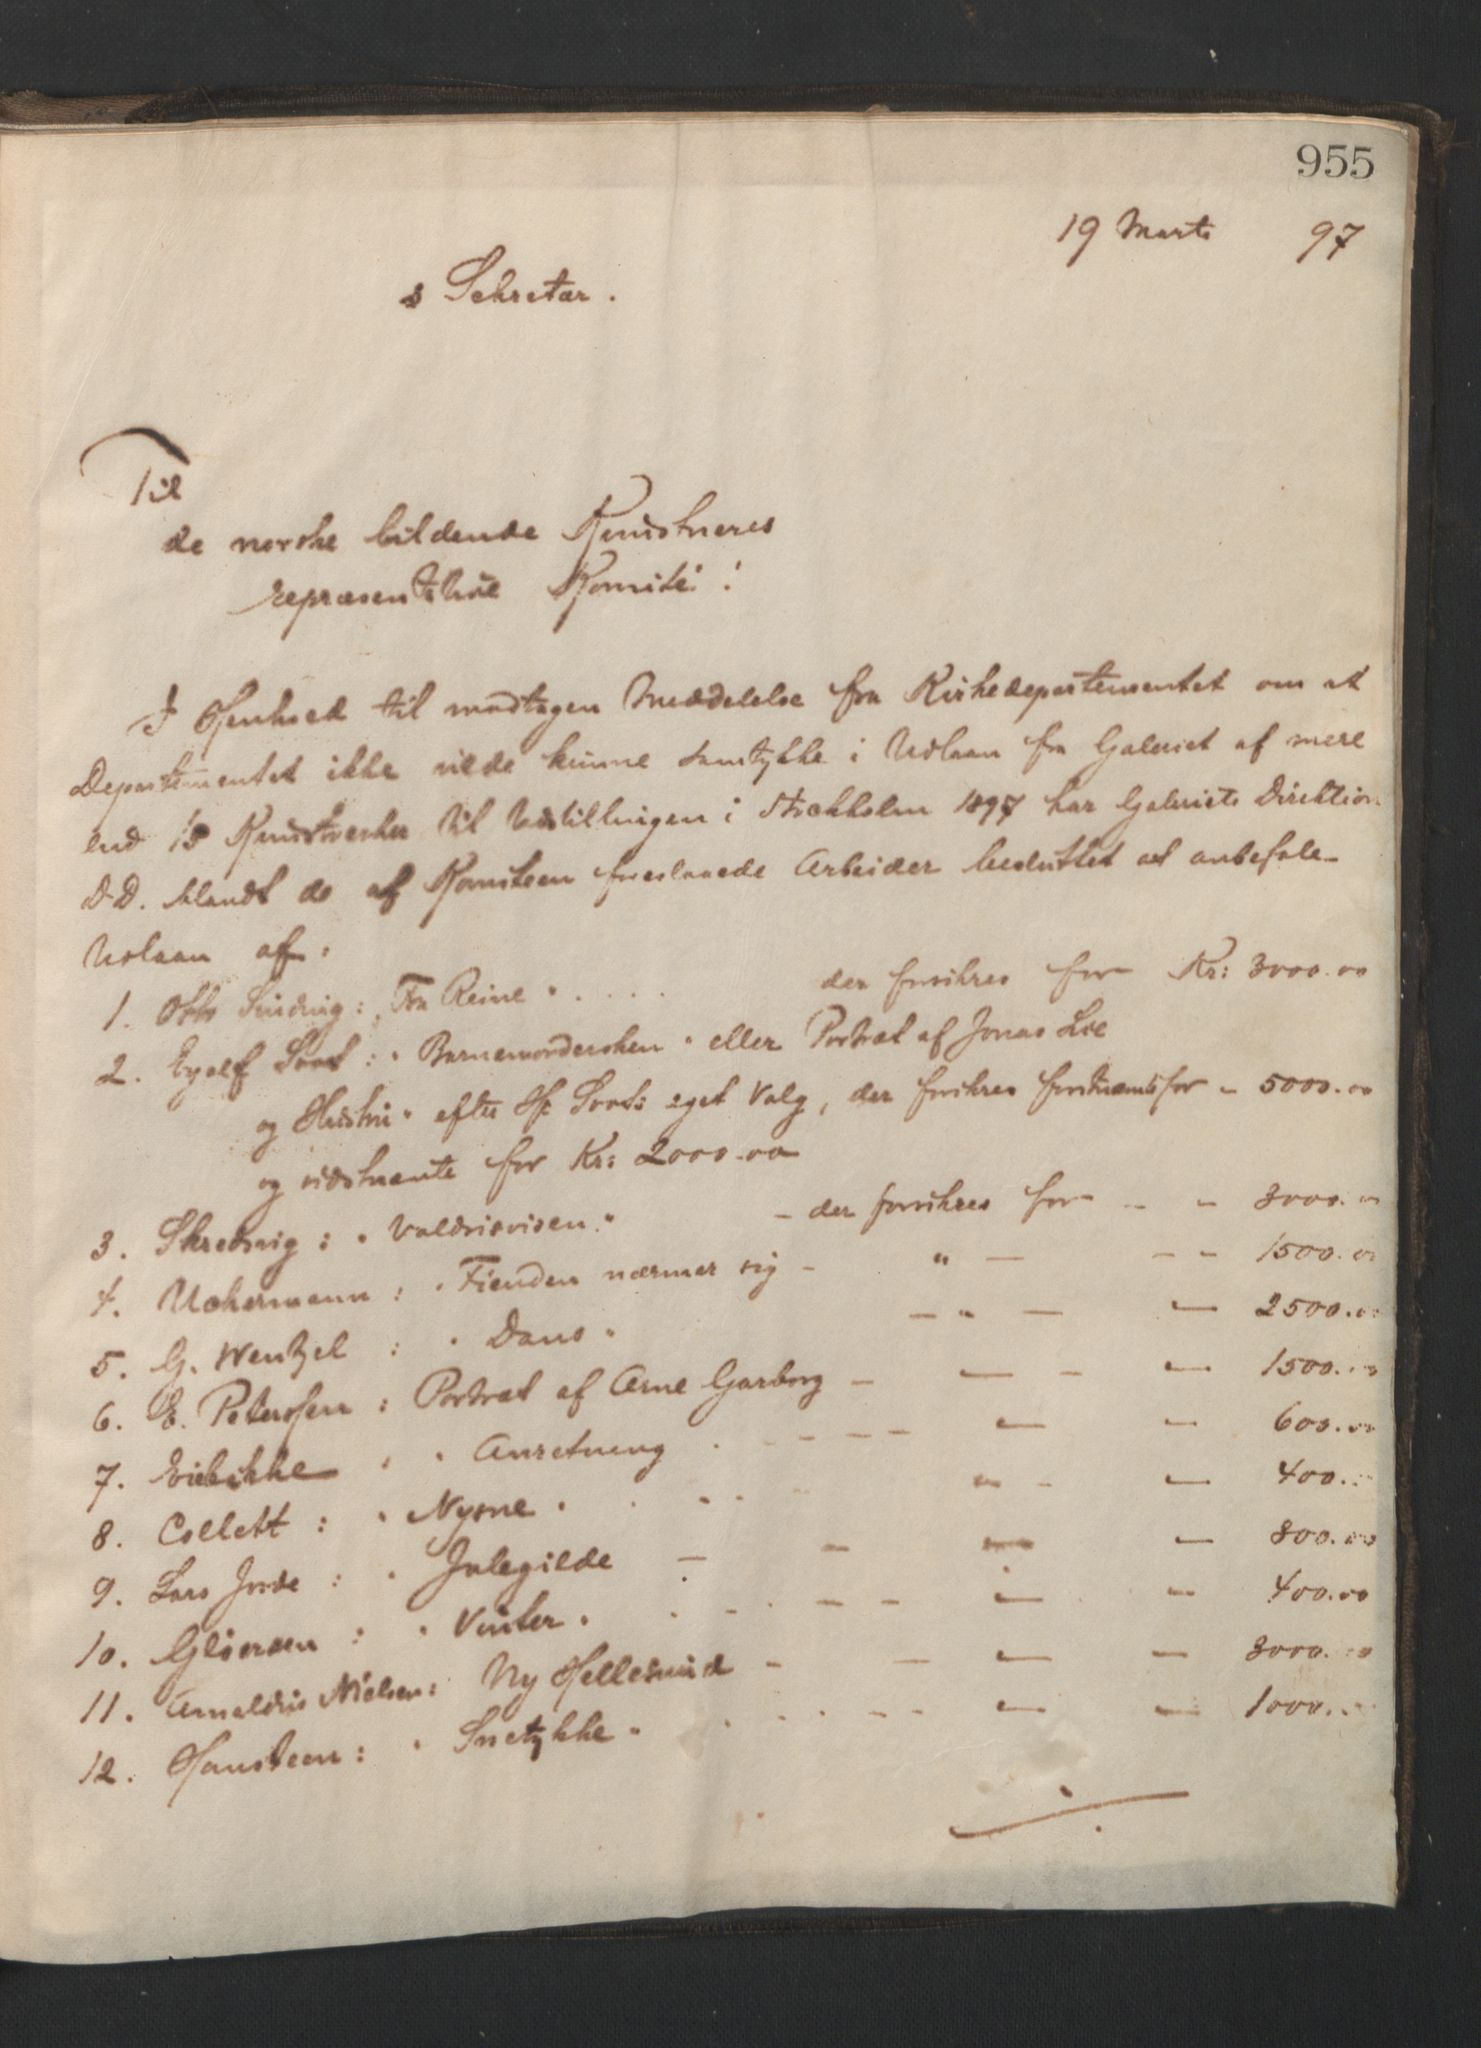 955
19 Marts 97
s Sekretær.
Til
de norske bildende Kunstneres
repræsentative Komité!
I Henhold til modtagen Meddelelse fra Kirkedepartementet om at
Departementet ikke vilde kunne samtykke i Udlaan fra Galeriet af mere
end 15 Kunstverker til Udstillingen i Stockholm 1897 har Galeriets Direktion
D.D. blandt de af Komiteen foreslaaede Arbeider besluttet at anbefale
Udlaan af:
1. Otto Sinding: "Fra Reine". . . . . der forsikres for Kr: 3000.00
2. Eyolf Soot: "Barnemordersken" eller Portræt af Jonas Lie
og Hustru" efter Hr Soots eget Valg, der forsikres førstnævnte for - 5000.00
og sidstnævnte for Kr: 2000.00
3. Skredsvig: "Valdrisvisen" - der forsikres for - - 3000.00
4. Uchermann: "Fienden nærmer sig - " — - - 1500.00
5. G. Wentzel: "Dans" — " — — 2500.00
6. E. Peterssen: Portræt af Arne Garborg — — - — 1500.00
7. Eiebakke " Anretning . - - - — - 600.00
8. Collett: "Nysne" . . . - - — 400.00
9. Lars Jorde: "Julegilde — - — - 800.00
10. Gløersen: "Vinter" . - - - - — - 400.00
11. Amaldus Nielsen: Ny Hellesund - — — - 3000.00
12. Hansteen: "Snetykke" . . . - - — - 1000.00